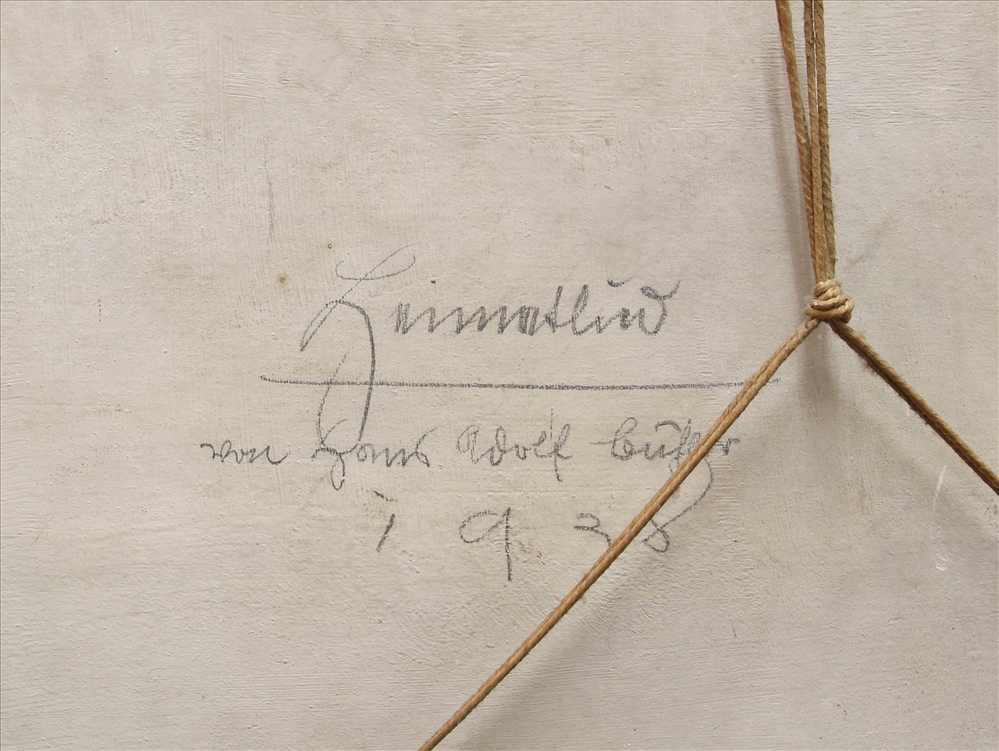 Heimatlied
von Hans Adolf Bühler
1938